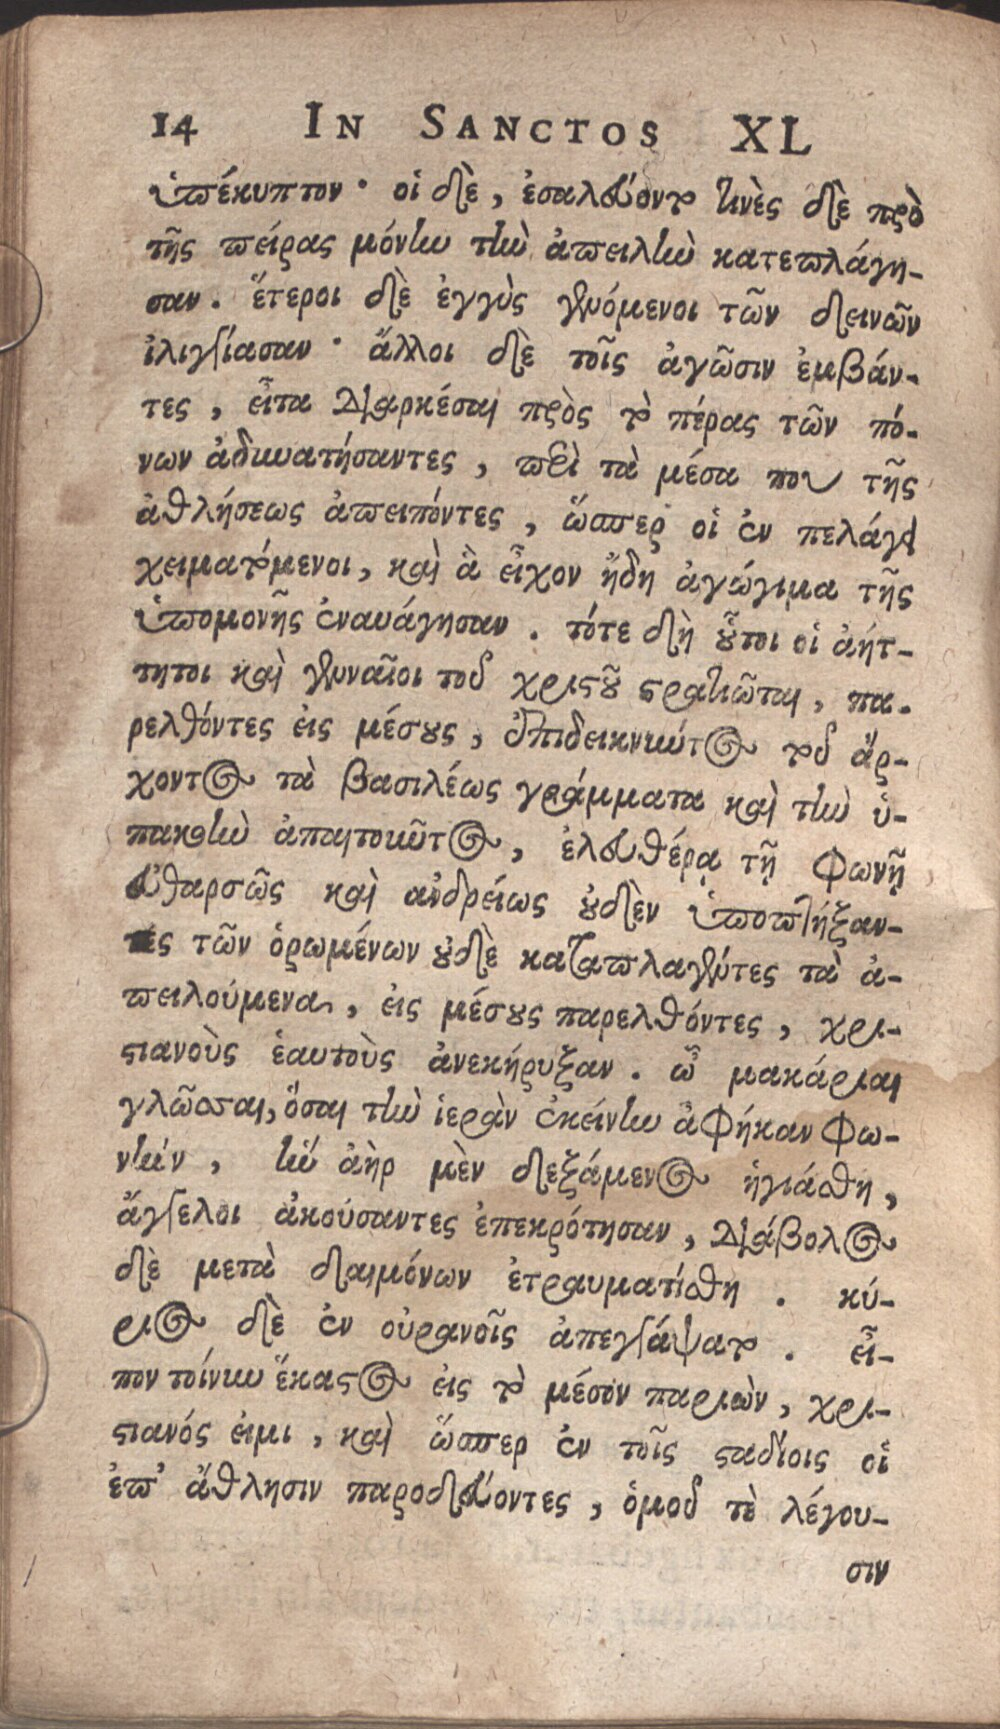 14 IN SANCTOS XL
ὑπέκυπτον· οἱ δὲ, ἐσαλεύοντο τινὲς δὲ πρὸ
τῆς πείρας μόνην τὴν ἀπειλὴν κατεπλάγη-
σαν. ἕτεροι δὲ ἐγγὺς γενόμενοι τῶν δεινῶν
ἰλιγγίασαν· ἄλλοι δὲ τοῖς ἀγῶσιν ἐμβάν-
τες, εἶτα διαρκέσαι πρὸς τὸ πέρας τῶν πό-
νων ἀδυνατήσαντες, περὶ τὰ μέσα που τῆς
ἀθλήσεως ἀπειπόντες, ὥσπερ οἱ ἐν πελάγει
χειμαζόμενοι, καὶ ἃ εἶχον ἤδη ἀγώγιμα τῆς
ὑπομονῆς ἐναυάγησαν. τότε δὴ οὗτοι οἱ ἀήτ-
τητοι καὶ γενναῖοι τοῦ χριστοῦ στρατιῶται, πα-
ρελθόντες εἰς μέσους, ἐπιδεικνύντος τοῦ ἄρ-
χοντος τὰ βασιλέως γράμματα καὶ τὴν ὑ-
πακοὴν ἀπαιτοῦντος, ἐλευθέρᾳ τῇ φωνῇ
εὐθαρσῶς καὶ ἀνδρείως οὐδὲν ὑποπτήξαν-
τες τῶν ὁρωμένων οὐδὲ καταπλαγέντες τὰ ἀ-
πειλούμενα, εἰς μέσους παρελθόντες, χρι-
στιανοὺς ἑαυτοὺς ἀνεκήρυξαν. ὦ μακάριαι
γλῶσσαι, ὅσαι τὴν ἱερὰν ἐκείνην ἀφῆκαν φω-
νὴν, ἣν ἀὴρ μὲν δεξάμενος ἡγιάσθη,
ἄγγελοι ἀκούσαντες ἐπεκρότησαν, διάβολος
δὲ μετὰ δαιμόνων ἐτραυματίσθη. κύ-
ριος δὲ ἐν οὐρανοῖς ἀπεγράψατο. εἶ-
πον τοίνυν ἕκαστος εἰς τὸ μέσον παριὼν, χρι-
στιανός εἰμι, καὶ ὥσπερ ἐν τοῖς σταδίοις οἱ
ἐπ' ἄθλησιν παροδεύοντες, ὁμοῦ τὲ λέγου-
σιν